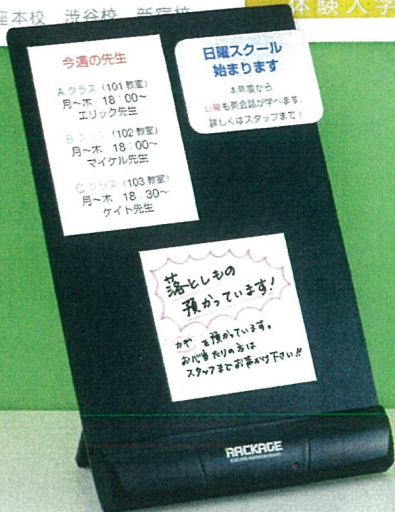 座本校 渋谷校 新宿校
体験入学
今週の先生
Aクラス（101教室）
月〜木 18：00〜
エリック先生
Bクラス（102教室）
月〜木 18：00〜
マイケル先生
Cクラス（103教室）
月〜木 18：30〜
ケイト先生
日曜スクール
始まります
本年度から
日曜も英会話が学べます。
詳しくはスタッフまで！
落としもの
預かっています！
カギを預かっています。
お心当たりの方は
スタッフまでお声がけ下さい!!
RACKAGE